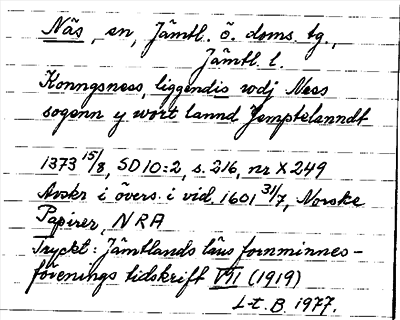 Näs, en, Jämtl. ö. doms. tg.,
Jämtl. l.
Konngsness, liggendis wdj Ness
sogenn y wort lannd Jemptelanndt
1373 15/8, SD 10:2, s. 216, nr X 249
Avskr i övers. i vid. 1601 31/7, Norske
Papirer, NRA
Tryckt: Jämtlands läns fornminnes-
förenings tidskrift VII (1919)
L-t. B. 1977.